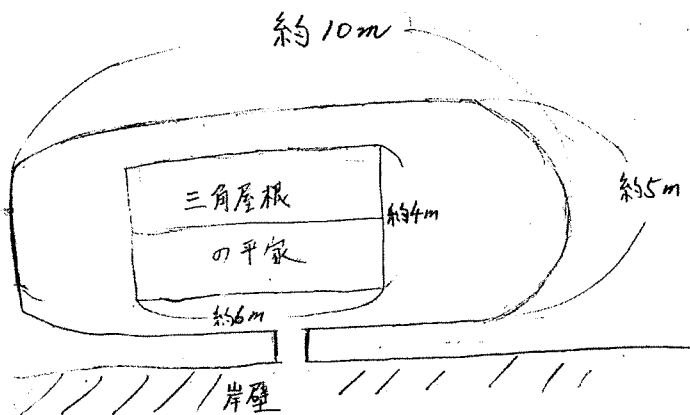 約10m
三角屋根
の平家
約4m
約5m
約6m
岸壁